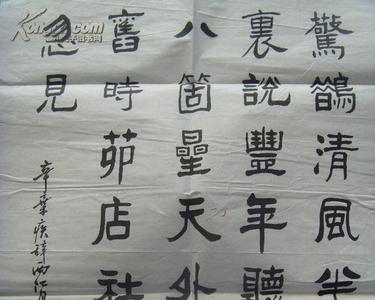 驚鵲清風半
裏說豐年聽
八箇星天外
舊時茆店社
忽見
辛棄疾辭西江月